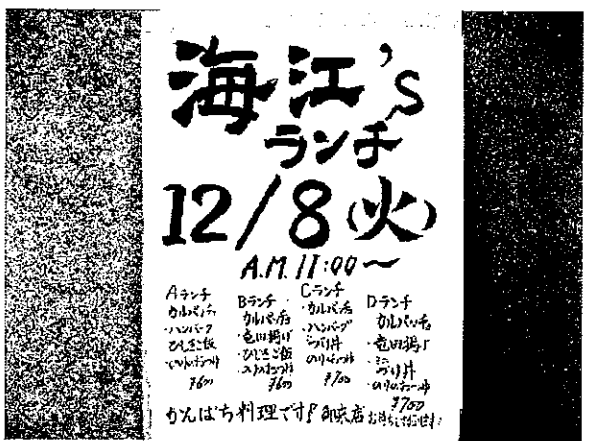 海江's
ランチ
12/8(火)
A.M.11:00〜
Aランチ
カルパッチョ
・ハンバーグ
ひじきご飯
¥600
Bランチ
カルパッチョ
・竜田揚げ
・ひじきご飯
¥600
Cランチ
・カルパッチョ
・ハンバーグ
づけ丼
¥700
Dランチ
カルパッチョ
・竜田揚げ
・ミニ
づけ丼
¥700
かんぱち料理です! 御来店